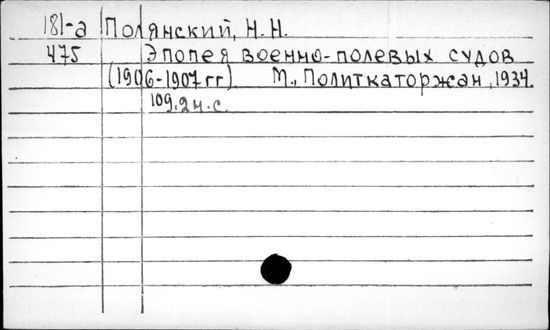 181-а Полянский, Н. Н.
475 Эпопея военно-полевых судов
(1906-1907 гг) М., Политкаторжан, 1934.
109.2н.с.